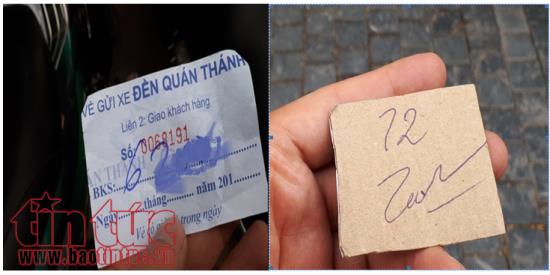 VÉ GỬI XE ĐỀN QUÁN THÁNH
Liên 2: Giao khách hàng
Số: 0068191
BKS: 62
Ngày......tháng......năm 201
Vé có giá trị trong ngày
tin tức
www.baotintuc.vn
72